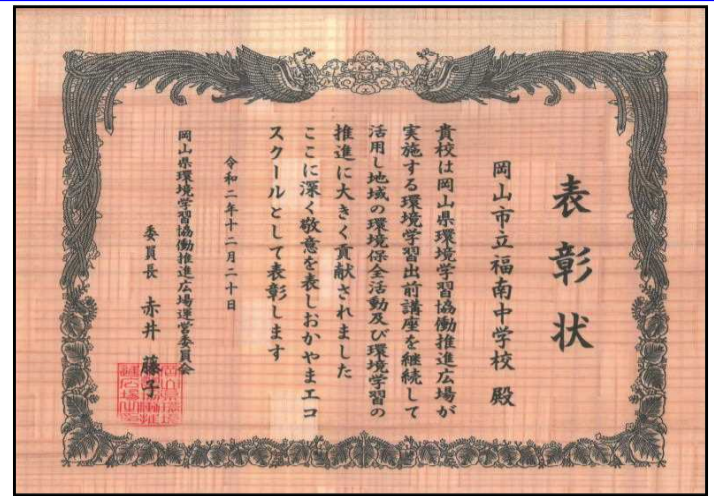 表彰状
岡山市立福南中学校 殿
貴校は岡山県環境学習協働推進広場が
実施する環境学習出前講座を継続して
活用し地域の環境保全活動及び環境学習の
推進に大きく貢献されました
ここに深く敬意を表しおかやまエコ
スクールとして表彰します
令和二年十二月二十日
岡山県環境学習協働推進広場運営委員会
委員長 赤井 藤子